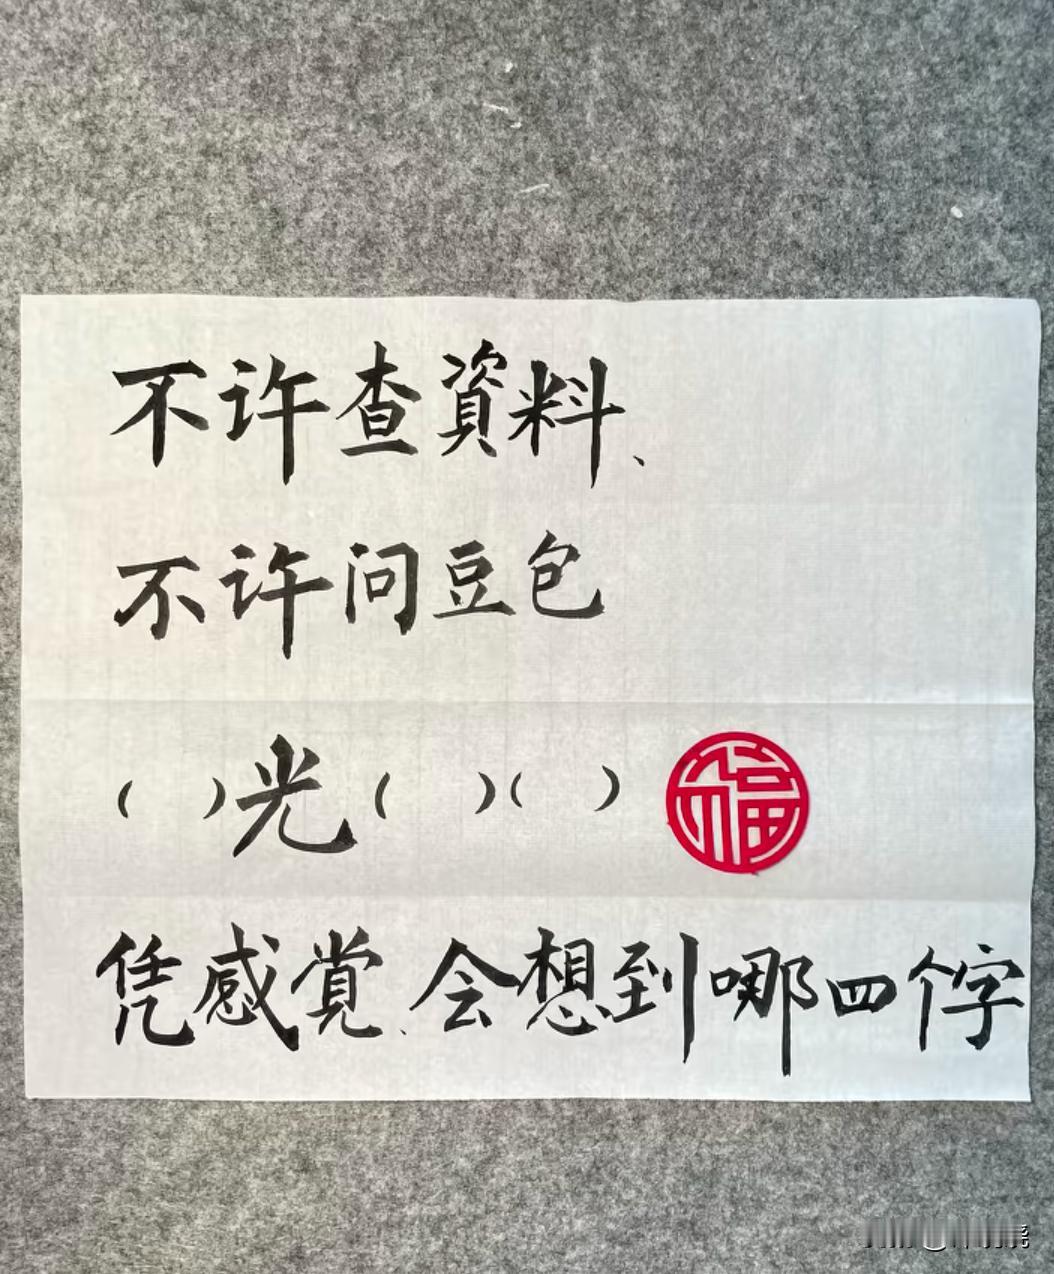 不许查資料、
不许问豆包
（ ）光（ ）（ ） 福
凭感觉、会想到哪四个字